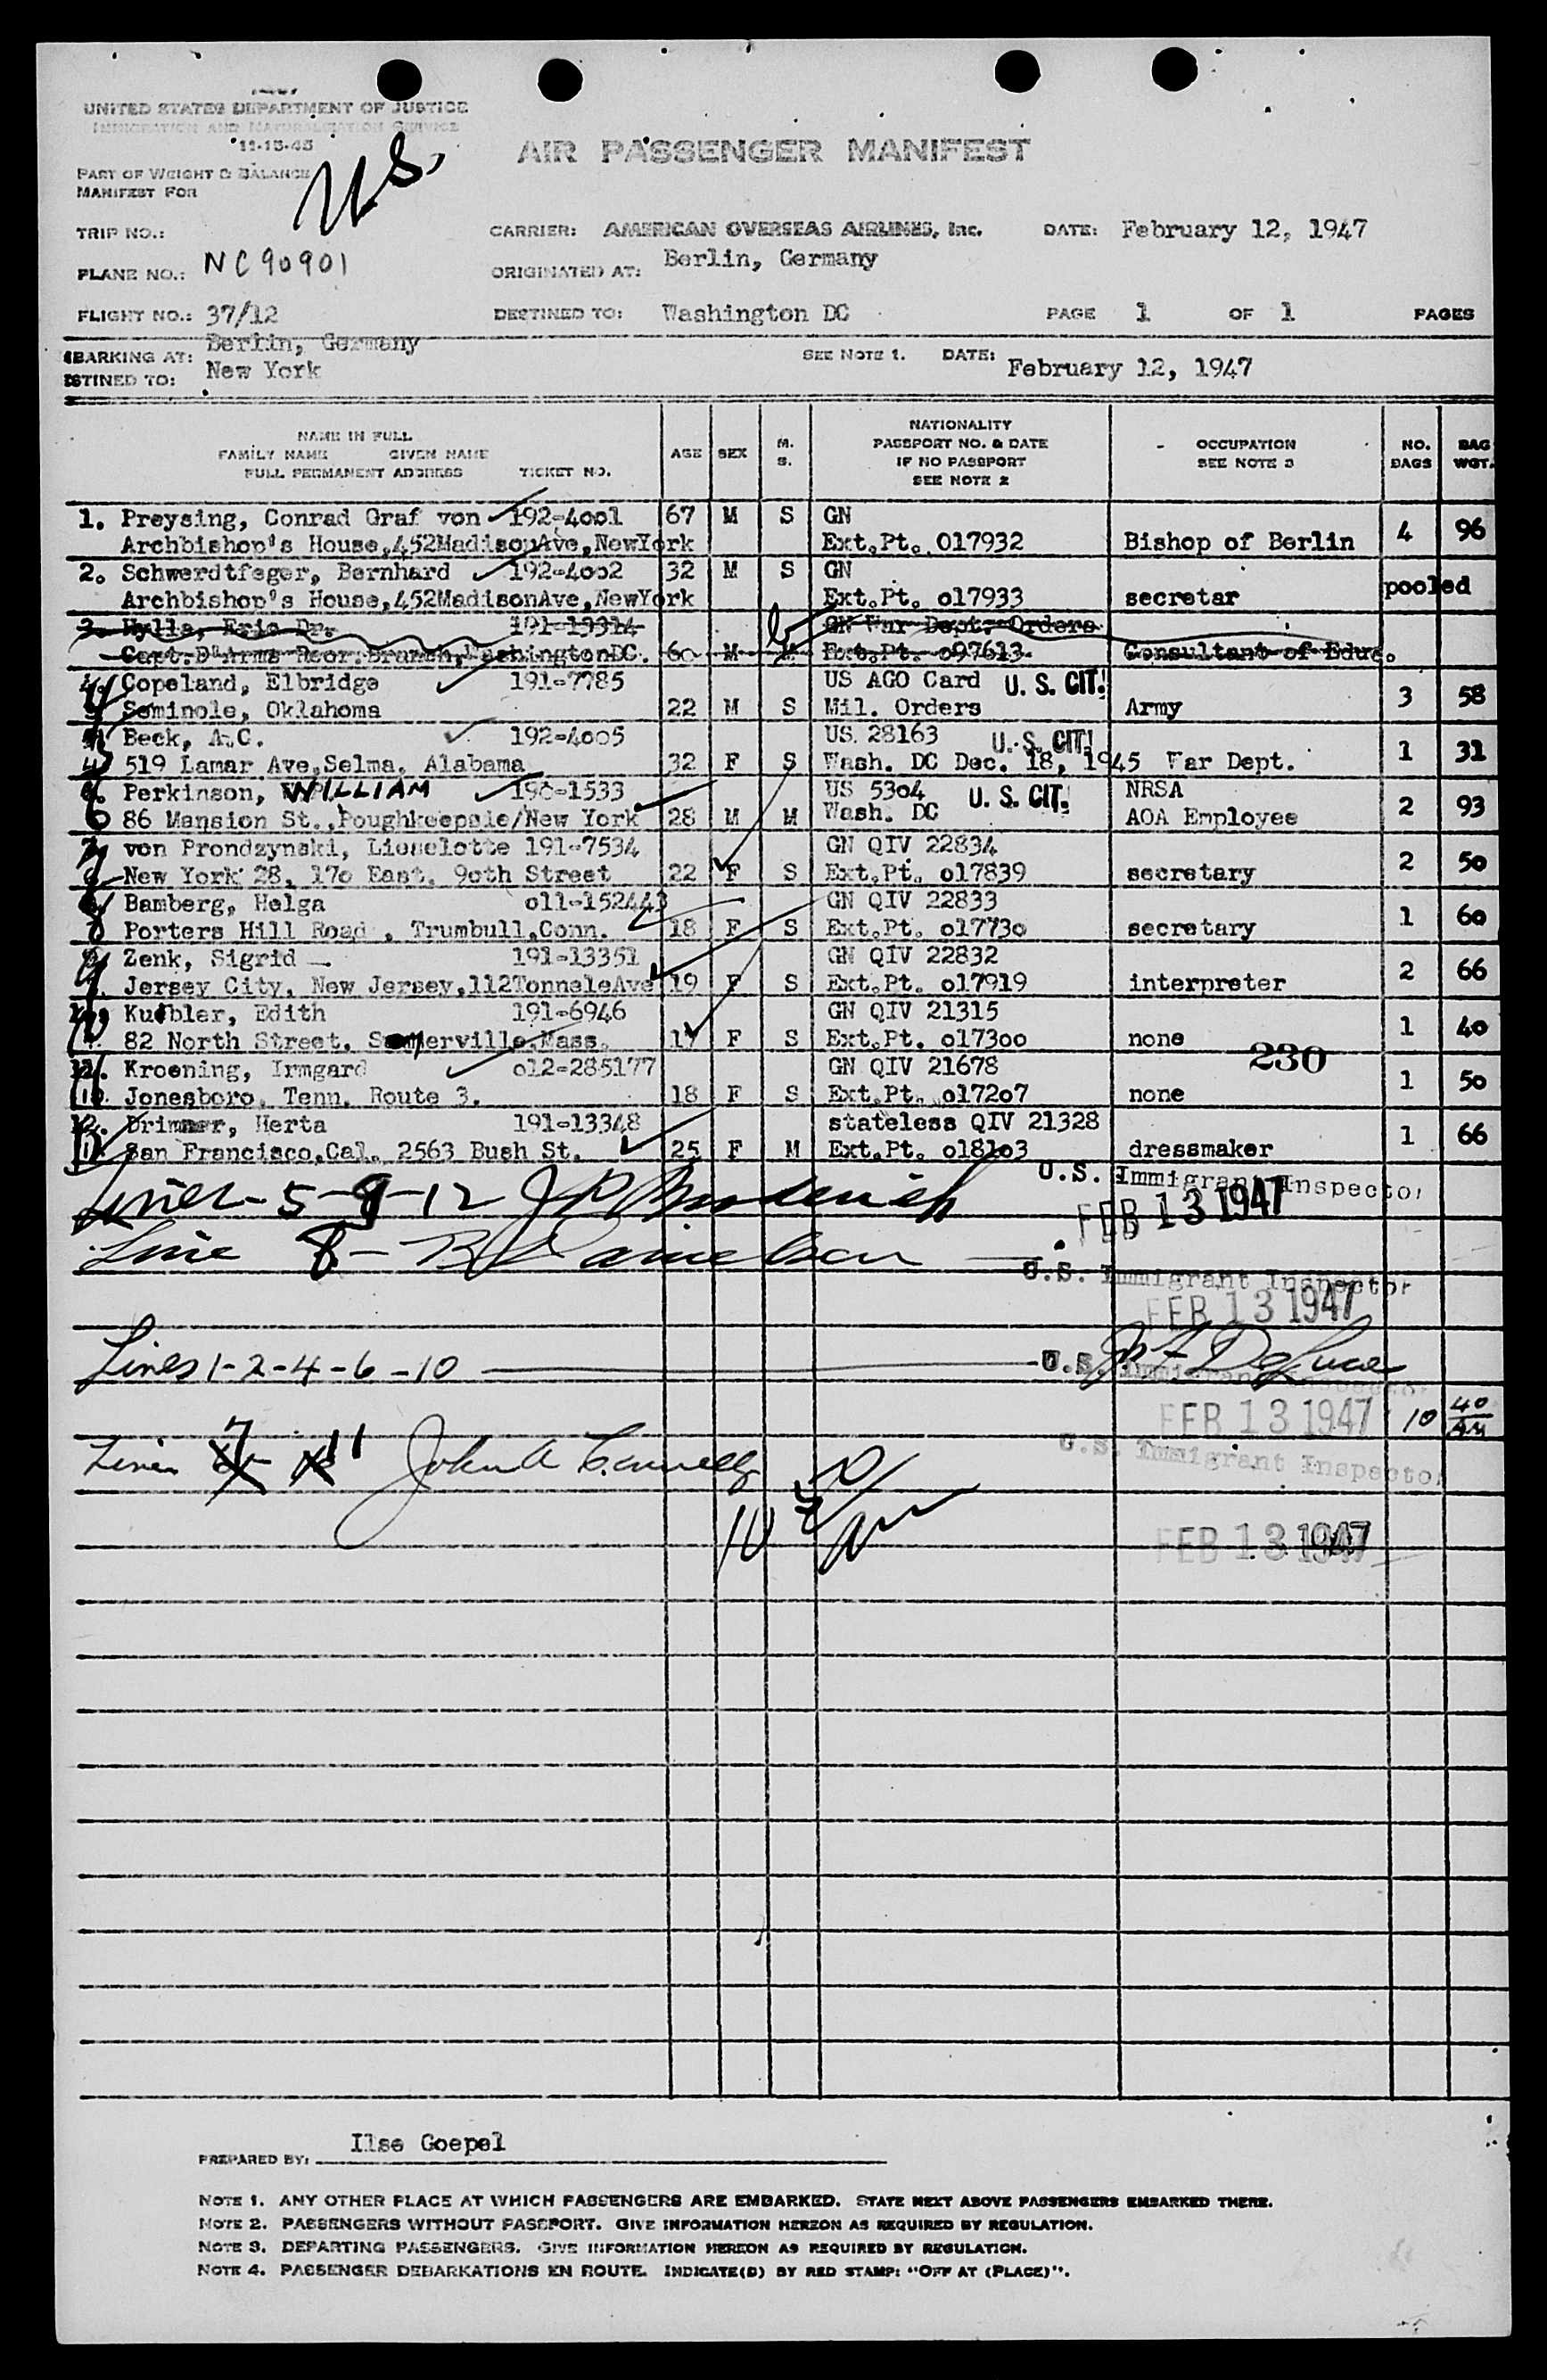 UNITED STATES DEPARTMENT OF JUSTICE
IMMIGRATION AND NATURALIZATION SERVICE
11-15-45
U.S.
AIR PASSENGER MANIFEST
PART OF WEIGHT & BALANCE
MANIFEST FOR
TRIP NO.: CARRIER: AMERICAN OVERSEAS AIRLINES, Inc. DATE: February 12, 1947
PLANE NO.: NC90901 ORIGINATED AT: Berlin, Germany
FLIGHT NO.: 37/12 DESTINED TO: Washington DC PAGE 1 OF 1 PAGES
MBARKING AT: Berlin, Germany SEE NOTE 1. DATE: February 12, 1947
ESTINED TO: New York
NAME IN FULL
FAMILY NAME GIVEN NAME
FULL PERMANENT ADDRESS TICKET NO. AGE SEX M. S. NATIONALITY PASSPORT NO. & DATE IF NO PASSPORT SEE NOTE 2 OCCUPATION SEE NOTE 3 NO. BAGS BAG WGT.
1. Preysing, Conrad Graf von 192-4001 67 M S GN
Archbishop's House,452MadisonAve,NewYork Ext.Pt. 017932 Bishop of Berlin 4 96
2. Schwerdtfeger, Bernhard 192-4002 32 M S GN
Archbishop's House,452MadisonAve,NewYork Ext.Pt. o17933 secretar pooled
3. Hylla, Eric Dr. 191-13314 GN War Dept. Orders
Capt.D'Arms Reor.Branch,WashingtonDC. 60 M Ext.Pt. o97613 Consultant of Educ.
4. Copeland, Elbridge 191-7785 US AGO Card U. S. CIT.
3 Seminole, Oklahoma 22 M S Mil. Orders Army 3 58
Beck, A.C. 192-4005 US. 28163 U. S. CIT.
4 519 Lamar Ave,Selma, Alabama 32 F S Wash. DC Dec. 18, 1945 War Dept. 1 31
6. Perkinson, WILLIAM 190-1533 US 5304 U. S. CIT. NRSA
86 Mansion St.,Poughkeepsie/New York 28 M M Wash. DC AOA Employee 2 93
7 von Prondzynski, Lieselotte 191-7534 GN QIV 22834
New York 28, 170 East. 90th Street 22 F S Ext.Pt. o17839 secretary 2 50
Bamberg, Helga o11-152443 GN QIV 22833
Porters Hill Road , Trumbull,Conn. 18 F S Ext.Pt. o1773o secretary 1 60
9 Zenk, Sigrid 191-13351 GN QIV 22832
Jersey City, New Jersey,112TonneleAve 19 F S Ext.Pt. o17919 interpreter 2 66
Kuebler, Edith 191-6946 GN QIV 21315
82 North Street. Somerville.Mass. 17 F S Ext.Pt. o173oo none 1 40
230
Kroening, Irmgard o12-285177 GN QIV 21678
Jonesboro, Tenn. Route 3. 18 F S Ext.Pt. o172o7 none 1 50
12. Drimmer, Herta 191-13348 stateless QIV 21328
San Francisco,Cal. 2563 Bush St. 25 F M Ext.Pt. o181o3 dressmaker 1 66
Lines - 5-9-12 U.S. Immigrant Inspector
FEB 13 1947
Line 8 - U.S. Immigrant Inspector
FEB 13 1947
Lines 1-2-4-6-10 U.S. Immigrant Inspector
FEB 13 1947 10 40 AM
Lines 7 11 John A U.S. Immigrant Inspector
10
FEB 13 1947
PREPARED BY: Ilse Goepel
NOTE 1. ANY OTHER PLACE AT WHICH PASSENGERS ARE EMBARKED. STATE NEXT ABOVE PASSENGERS EMBARKED THERE.
NOTE 2. PASSENGERS WITHOUT PASSPORT. GIVE INFORMATION HEREON AS REQUIRED BY REGULATION.
NOTE 3. DEPARTING PASSENGERS. GIVE INFORMATION HEREON AS REQUIRED BY REGULATION.
NOTE 4. PASSENGER DEBARKATIONS EN ROUTE. INDICATE(D) BY RED STAMP: "OFF AT (PLACE)".